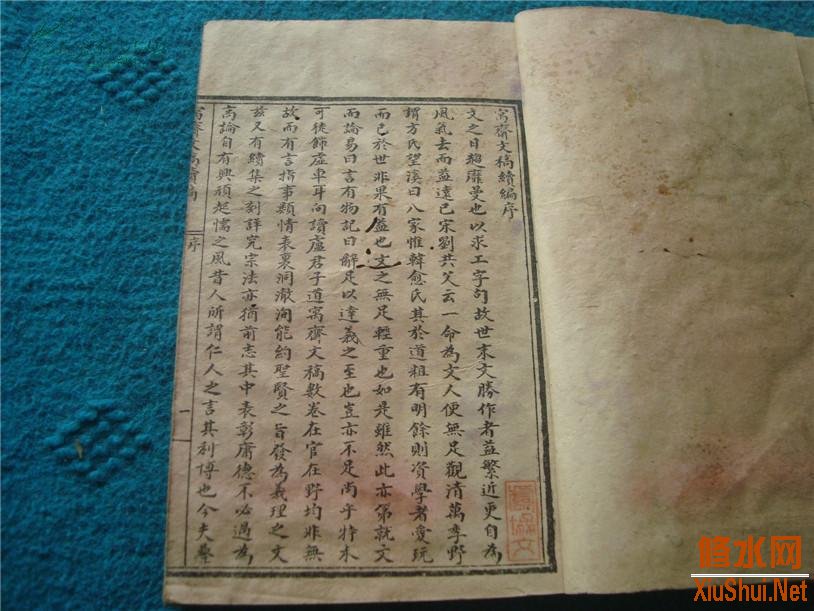 寫齋文稿續編序
文之日趨靡曼也以求工字句故世末文勝作者益繁近更自為
風氣去而益遠已宋劉共父云一命為文人便無足觀清萬季野
謂方氏望溪曰八家惟韓愈氏其於道粗有明餘則資學者愛玩
而已於世非果有益也文之無足輕重也如是雖然此亦第就文
而論易曰言有物記曰辭足以達義之至也豈亦不足尚乎特未
可徒飾虛車耳向讀盧君子道寫齋文稿數卷在官在野均非無
故而有言指事類情表裏洞澈洵能約聖賢之旨發為義理之文
茲又有續集之刻詳究宗法亦猶前志其中表彰庸德不必過為
高論自有興頑起懦之風昔人所謂仁人之言其利博也今夫羣
齋文稿續編
序
一
修水网
XiuShui.Net